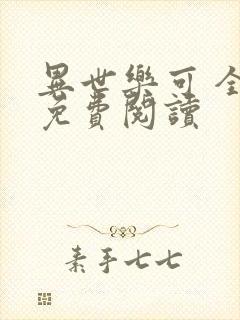 異世樂可 全
免費閱讀
素手七七